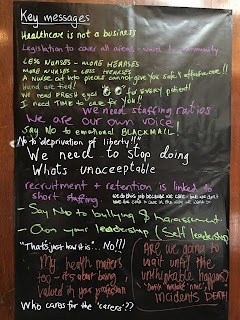 Key messages
Healthcare is not a business
Legislation to cover all areas - ward to community
LESS NURSES - MORE HEARSES
MORE NURSES - LESS HEARSES
A nurse cut into pieces cannot give you safe & effective care!!
Hands are tied!
We need FRESH eyes for every patient!
I need TIME to care for YOU!!
we need staffing ratios
We are our own voice!
Say No to emotional BLACKMAIL!
No to "deprivation of liberty"!!
We need to stop doing
What's unacceptable
recruitment + retention is linked to
short staffing
we do this job because we care - but we don't
Say No to bullying & harassment
Own your leadership (Self leadership
"That's just how it is"... No!!!
My health matters
too - it's about being
valued in your profession
Are we going to
wait until the
unthinkable happens?
incidents DEATH
Who cares for the 'carers'??